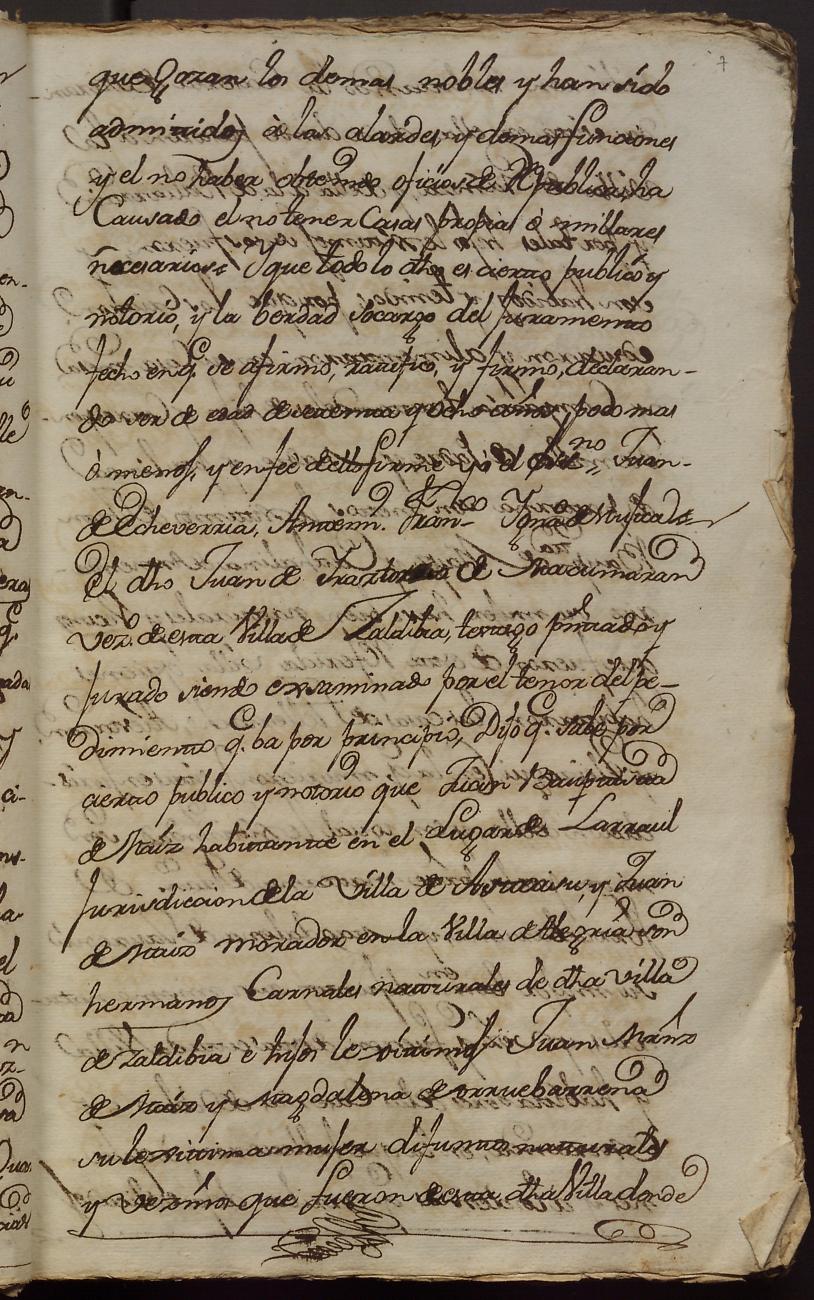 7
que Gozan los demas nobles y han sido
admitidos à las alardes y demas funciones
y el no haber obtenido oficios de Republica, ha
Causado el no tener Casas propias ò millares
necesarios: Y que todo lo dho es cierto publico y
notorio, y la berdad socargo del juramento
fecho en q. se afirmo, ratifico, y firmo, declaran-
do ser de edad de y ocho años, poco mas
ò menos, y en fee dello firme yo el Juan
de Echeverria, Antemi. Franco
El dho Juan de de
Vezo. de esta Villa de Zaldibia, testigo pntado y
jurado siendo examinado por el tenor del pe-
dimiento q. ba por principio, Dijo q. sabe por
cierto publico y notorio que Juan Bauptista
de habitante en el Lugar de Larraul
Jurisdiccion de la Villa de y Juan
de morador en la Villa de Alegria son
hermanos Carnales naturales de dha Villa
de Zaldibia è hijos lexitimos Juan Mrnz
de y Magdalena de Orruebarrena
su lexitima mujer difuntos naturales
y vezinos que fueron de esta dha Villa donde